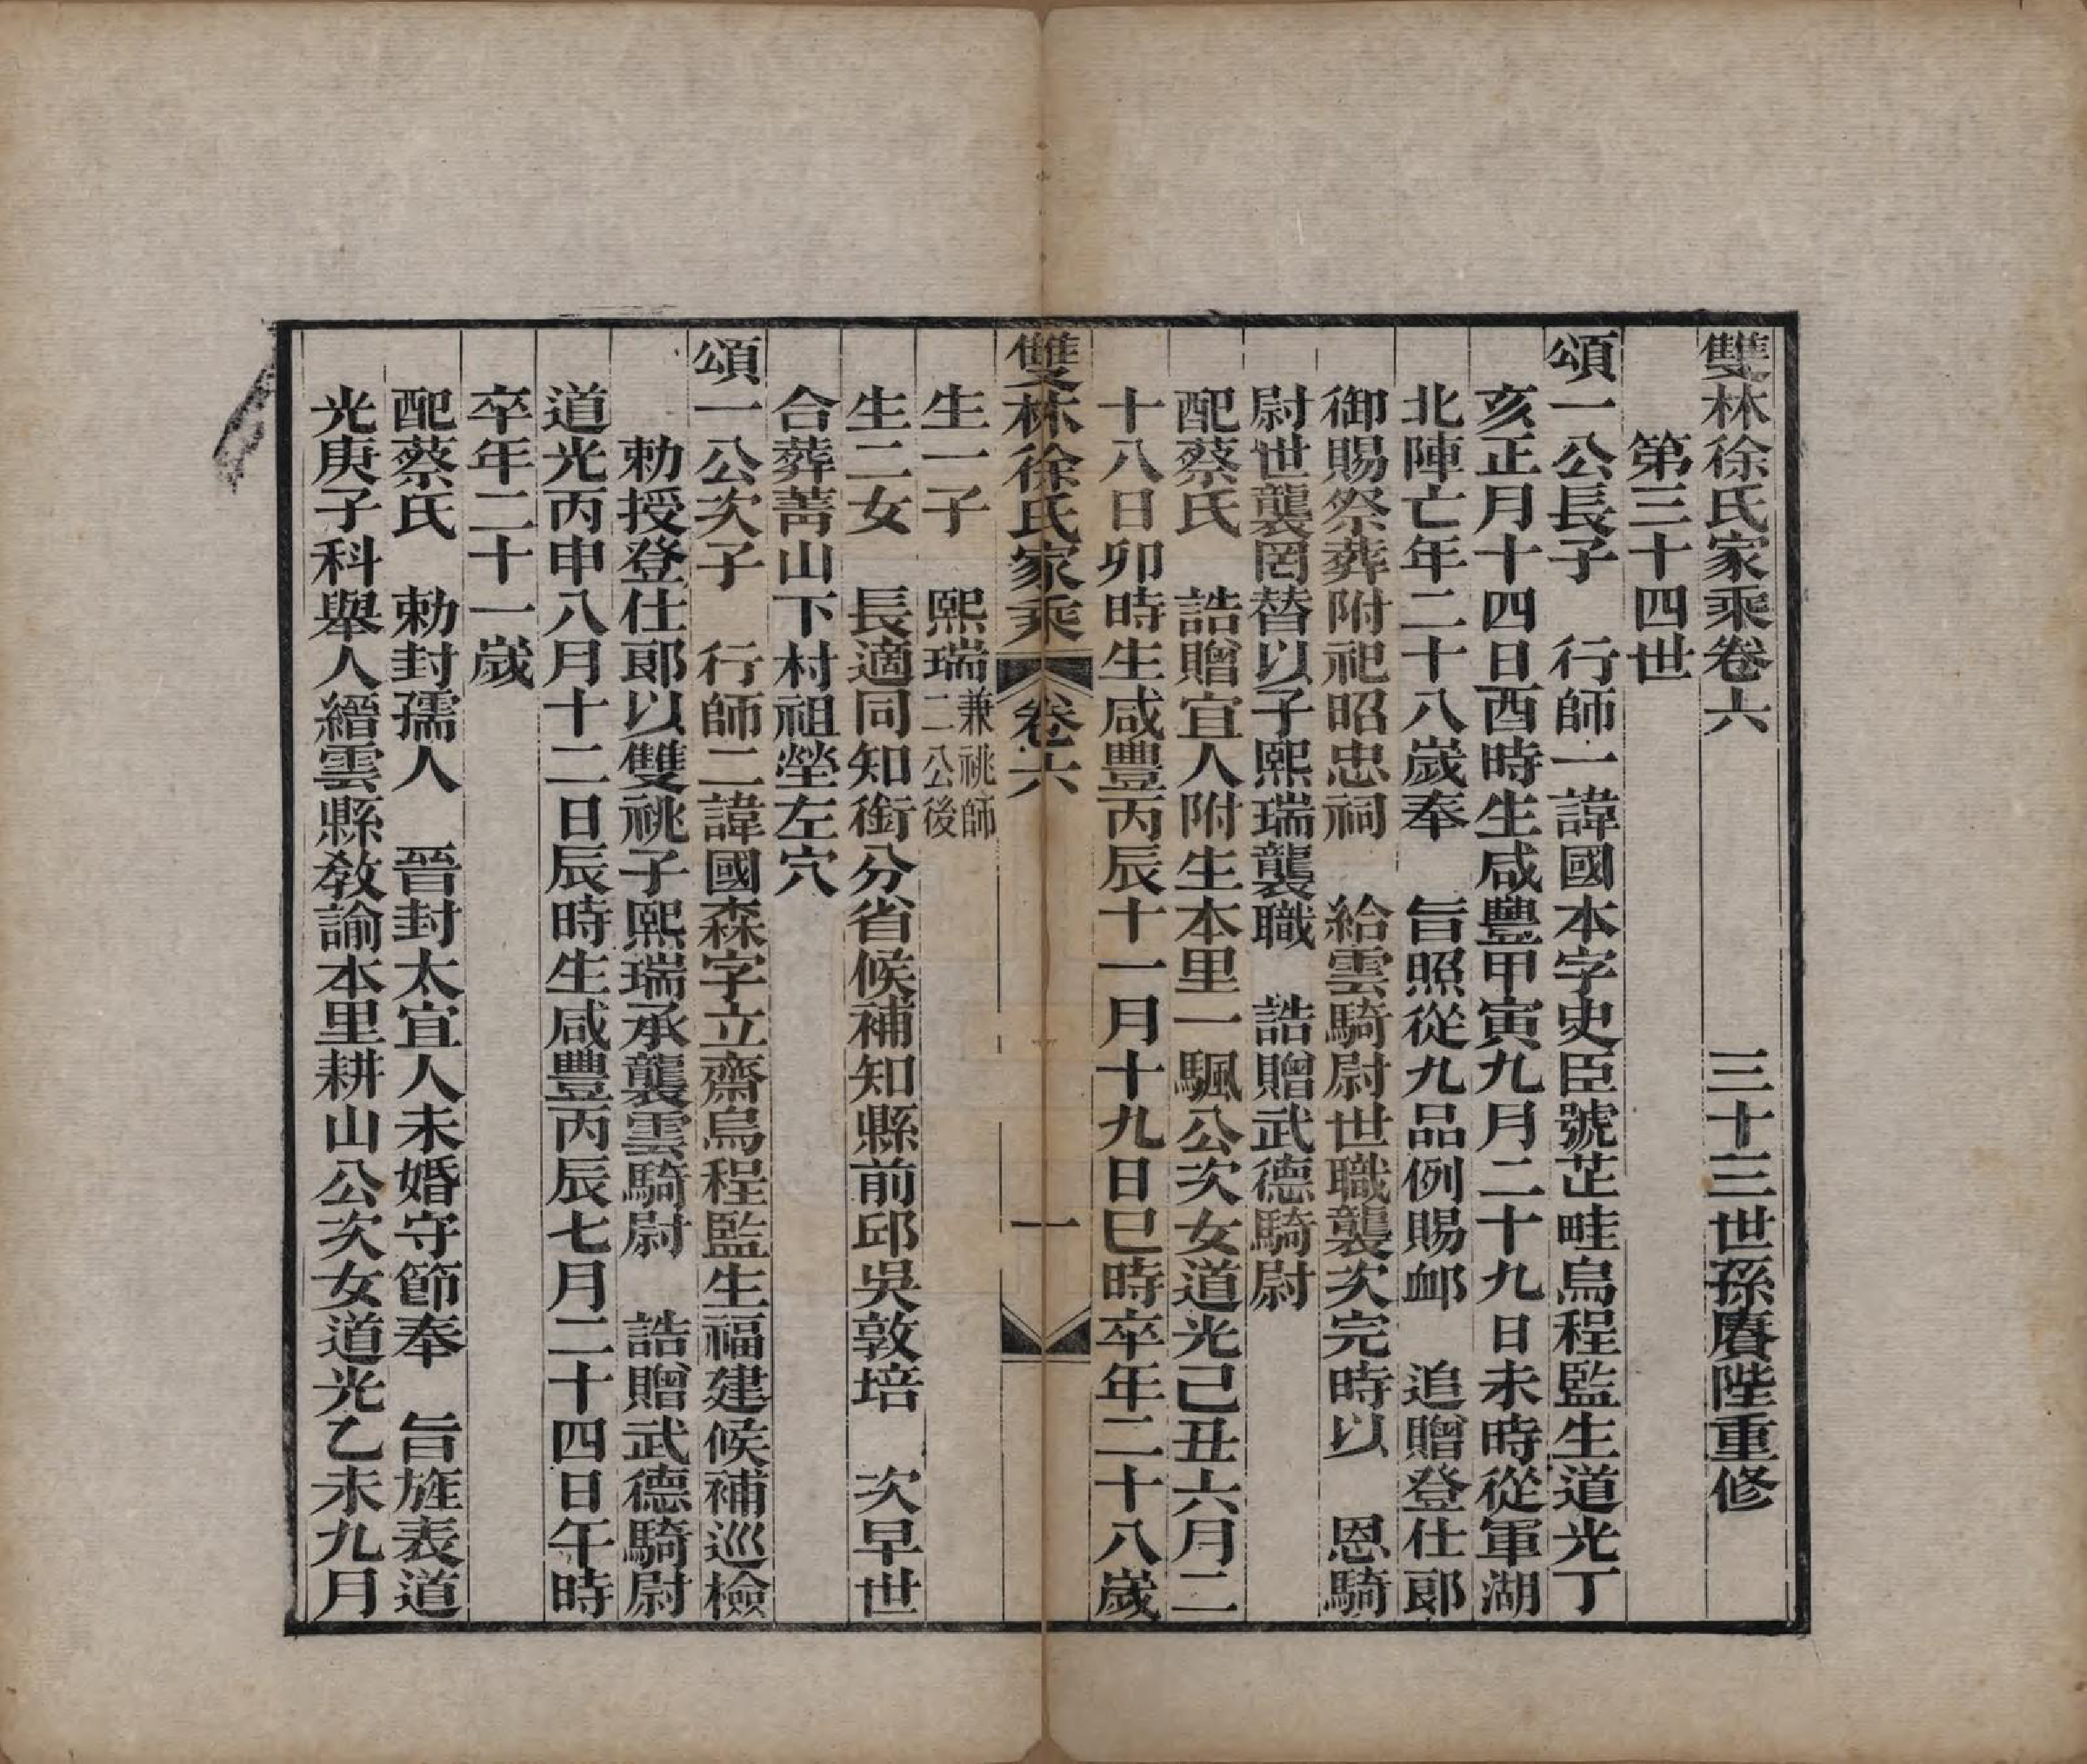 雙林徐氏家乘卷六　三十三世孫賡陛重修
第三十四世
頌一公長子　行師一諱國本字史臣號芷畦烏程監生道光丁
亥正月十四日酉時生咸豐甲寅九月二十九日未時從軍湖
北陣亡年二十八歲奉　旨照從九品例賜䘏　追贈登仕郎
御賜祭葬附祀昭忠祠　給雲騎尉世職襲次完時以　恩騎
尉世襲罔替以子熙瑞襲職　誥贈武德騎尉
配蔡氏　誥贈宜人附生本里一颿公次女道光己丑六月二
十八日卯時生咸豐丙辰十一月十九日巳時卒年二十八歲
雙林徐氏家乘　卷六　一
生一子　熙瑞兼祧師二公後
生二女　長適同知銜分省候補知縣前邱吳敦培　次早世
合葬菁山下村祖塋左穴
頌一公次子　行師二諱國森字立齋烏程監生福建候補巡檢
勅授登仕郎以雙祧子熙瑞承襲雲騎尉　誥贈武德騎尉
道光丙申八月十二日辰時生咸豐丙辰七月二十四日午時
卒年二十一歲
配蔡氏　勅封孺人　晉封太宜人未婚守節奉　旨旌表道
光庚子科舉人縉雲縣敎諭本里耕山公次女道光乙未九月